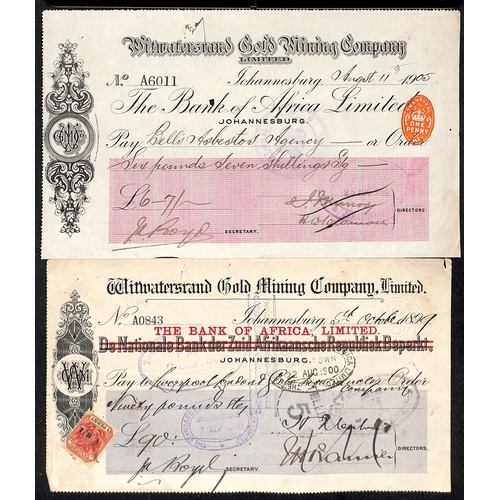 Witwatersrand Gold Mining Company
LIMITED.
No. A6011 Johannesburg, August 11th 1905
The Bank of Africa Limited
JOHANNESBURG.
ONE PENNY
Pay Bells Asbestos Agency or Order
Six pounds Seven Shillings
£6-7/-
DIRECTORS
SECRETARY.
Witwatersrand Gold Mining Company, Limited.
No. A0843 Johannesburg, 5th October 1899
THE BANK OF AFRICA, LIMITED.
De Nationale Bank der Zuid Afrikaansche Republiek Beperkt,
JOHANNESBURG.
22 AUG 1900
Pay to Liverpool London & Globe Insurance Order
Company
Ninety pounds
5
£90:
DIRECTORS.
SECRETARY